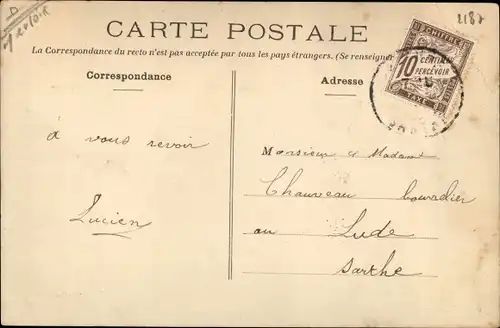 2187
CARTE POSTALE
La Correspondance du recto n'est pas acceptée par tous les pays étrangers. (Se renseigner
Correspondance
Adresse
CHIFFRE
10 CENTIMES
PERCEVOIR
TAXE
à vous revoir
Lucien
Monsieur et Madame
Chauveau bourrelier
au Lude
Sarthe